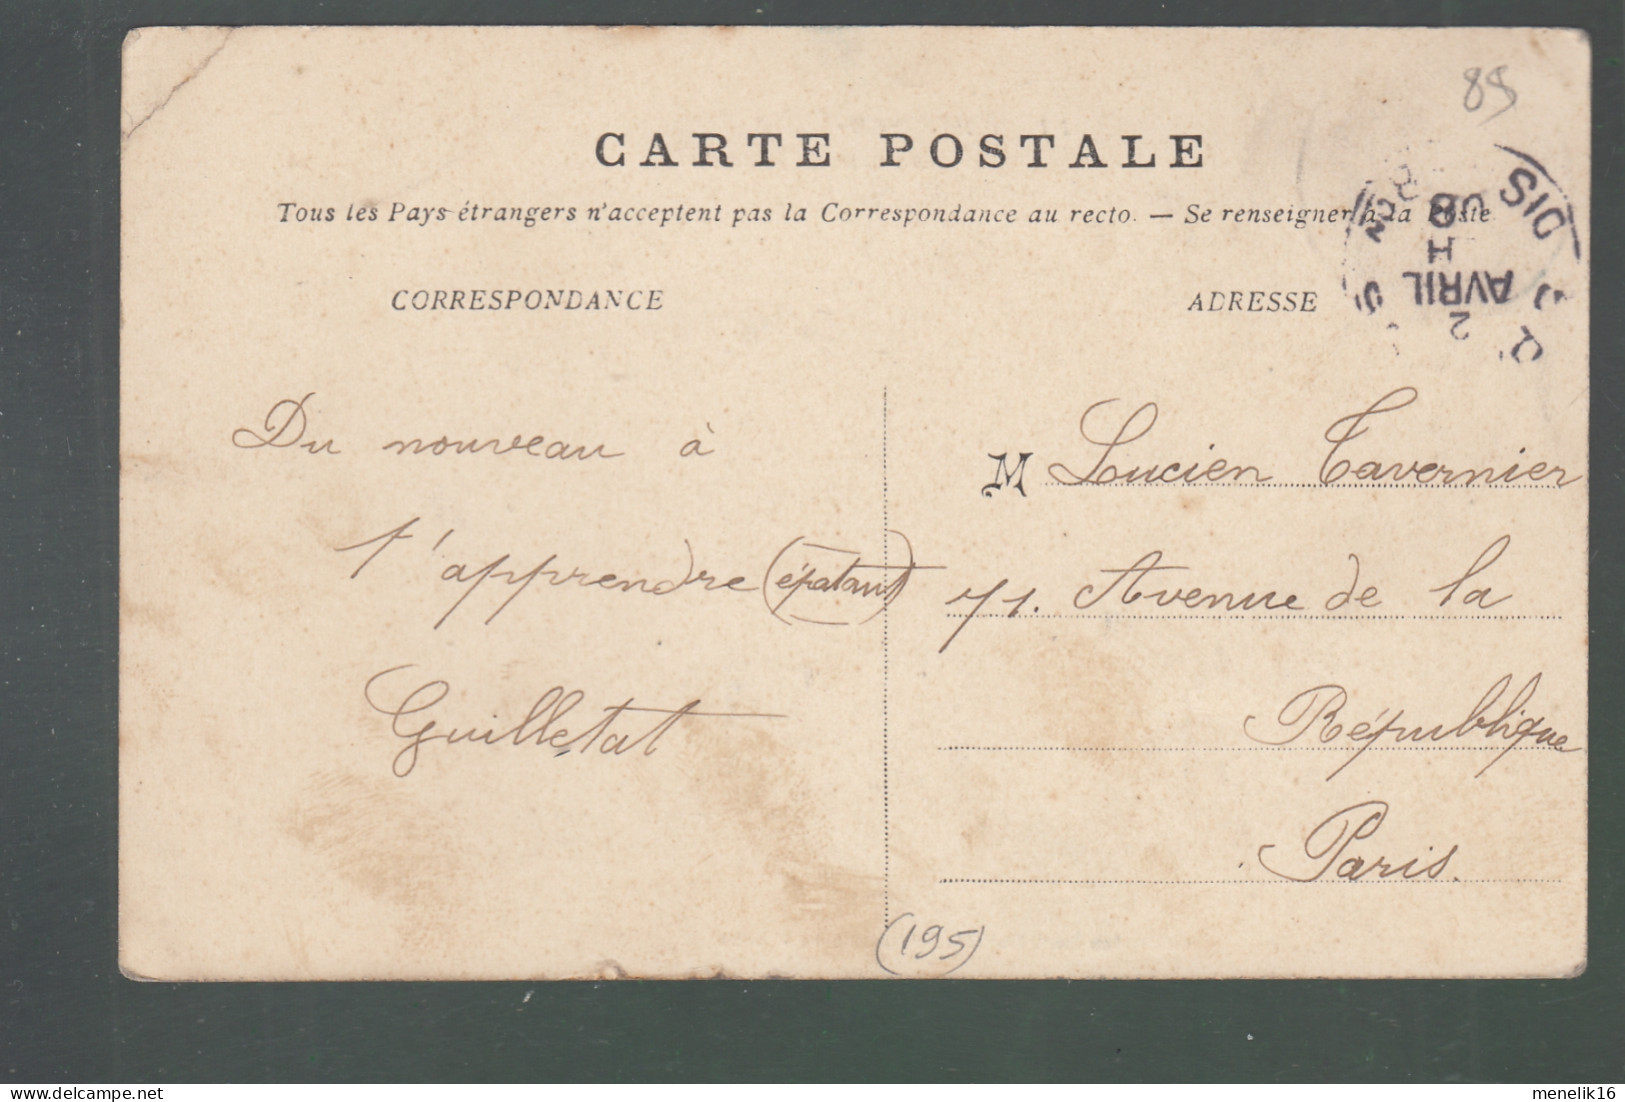 85
CARTE POSTALE
Tous les Pays étrangers n'acceptent pas la Correspondance au recto. — Se renseigner à la Poste
8 H
AVRIL
2
CORRESPONDANCE
ADRESSE
Du nouveau à
t'apprendre (épatant)
Guilletat
M Lucien Tavernier
71. Avenue de la
République
Paris.
(195)
menelik16